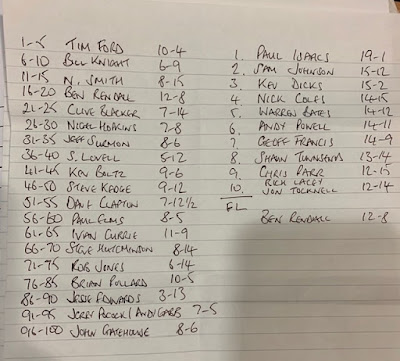 1-5 TIM FORD 10-4
6-10 BILL KNIGHT 6-9
11-15 N. SMITH 8-15
16-20 BEN RENDALL 12-8
21-25 CLIVE BLACKER 7-14
26-30 NIGEL HOPKINS 7-8
31-35 JEFF SURMON 8-6
36-40 S. LOVELL 5-12
41-45 KEN BOLTZ 9-6
46-50 STEVE KEDGE 9-12
51-55 DAVE CLAPTON 7-12½
56-60 PAUL ELMS 8-5
61-65 IVAN CURRIE 11-9
66-70 STEVE HUTCHINSON 8-14
71-75 ROB JONES 6-14
76-85 BRIAN PULLARD 10-5
86-90 JESSE EDWARDS 3-13
91-95 JERRY POCOCK / ANDY GARB 7-5
96-100 JOHN GATEHOUSE 8-6
1. PAUL ISAACS 19-1
2. SAM JOHNSON 15-12
3. KEV DICKS 15-2
4. NICK COLES 14-15
5. WARREN BATES 14-12
6. ANDY POWELL 14-11
7. GEOFF FRANCIS 14-9
8. SHAUN TOWNSEND 13-14
9. CHRIS PARR 12-15
RICH LACEY
10. JON TOCKNELL 12-14
FL
BEN RENDALL 12-8